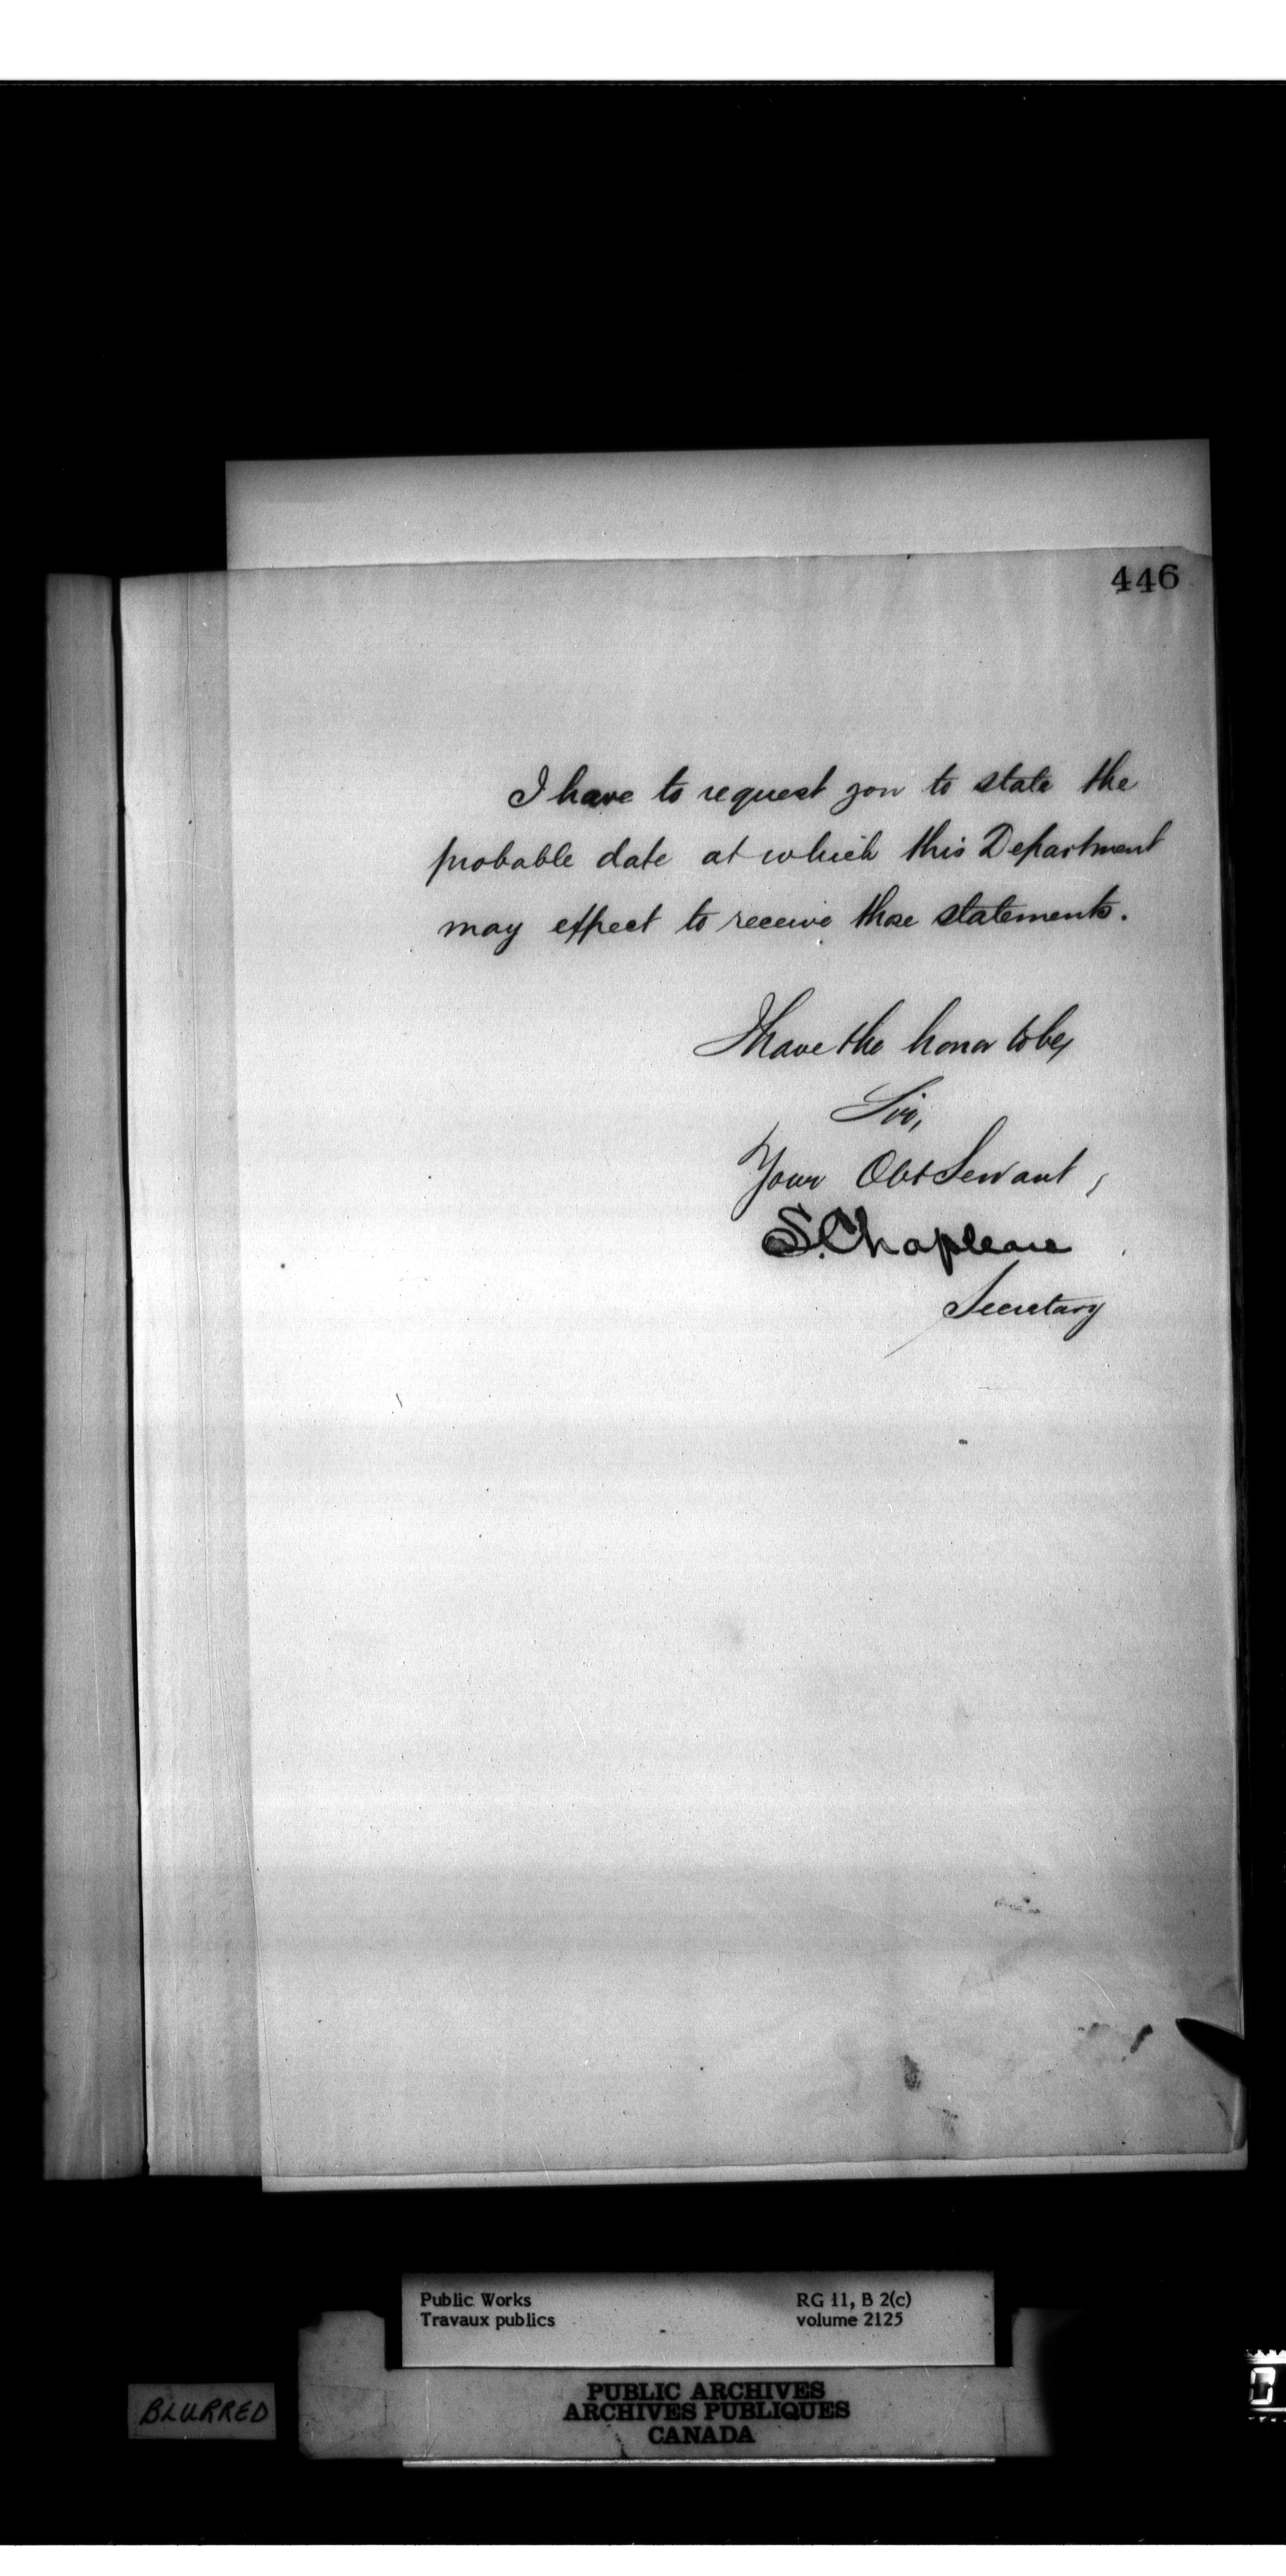 446
I have to request you to state the
probable date at which this Department
may expect to receive those statements.
I have the honor to be,
Sir,
Your Obt Servant,
S. Chapleau
Secretary
Public Works
Travaux publics
RG 11, B 2(c)
volume 2125
PUBLIC ARCHIVES
ARCHIVES PUBLIQUES
CANADA
BLURRED